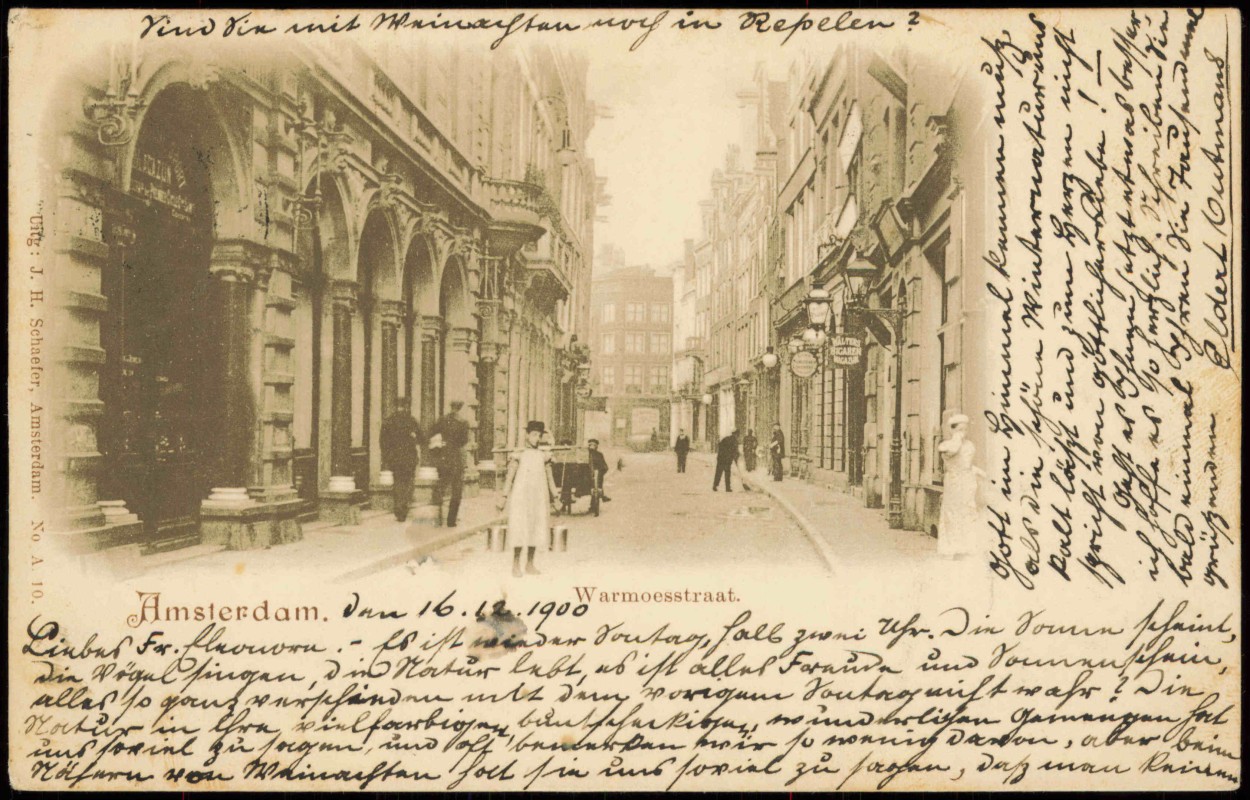 Sind Sie mit Weinachten noch in Repelen?
Uitg: J. H. Schaefer, Amsterdam. No A 10.
WALTERS
SIGAREN
MAGAZIJN
Amsterdam. den 16.12.1900
Warmoesstraat.
Liebes Fr. Eleonora. - Es ist wieder Sontag, halb zwei Uhr. Die Sonne scheint,
die Vögel singen, die Natur lebt, es ist alles Freude und Sonnenschein,
alles so ganz verschieden mit dem vorigem Sontag nicht wahr? Die
Natur in Ihre vielfarbigen, buntscheckigen, wunderligen Gemengen hat
uns soviel zu sagen, und oft bemerken wir so wenig davon, aber beim
Nähern von Weinachten hat sie uns soviel zu sagen, daß man keinen
Gott im Himmel kennen muß
als die schöne Winternatur uns
kalt läßt und zum Herzen nicht
spricht von göttlicher Liebe! —
Geht es Ihnen jetzt etwas besser
ich hoffe es so herzlich. Schreiben Sie
bald einmal Ihren Sie tausendmal
grüßenden
Eldert